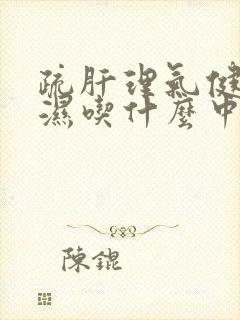 疏肝理氣健
濕喫什麼中
陳錕